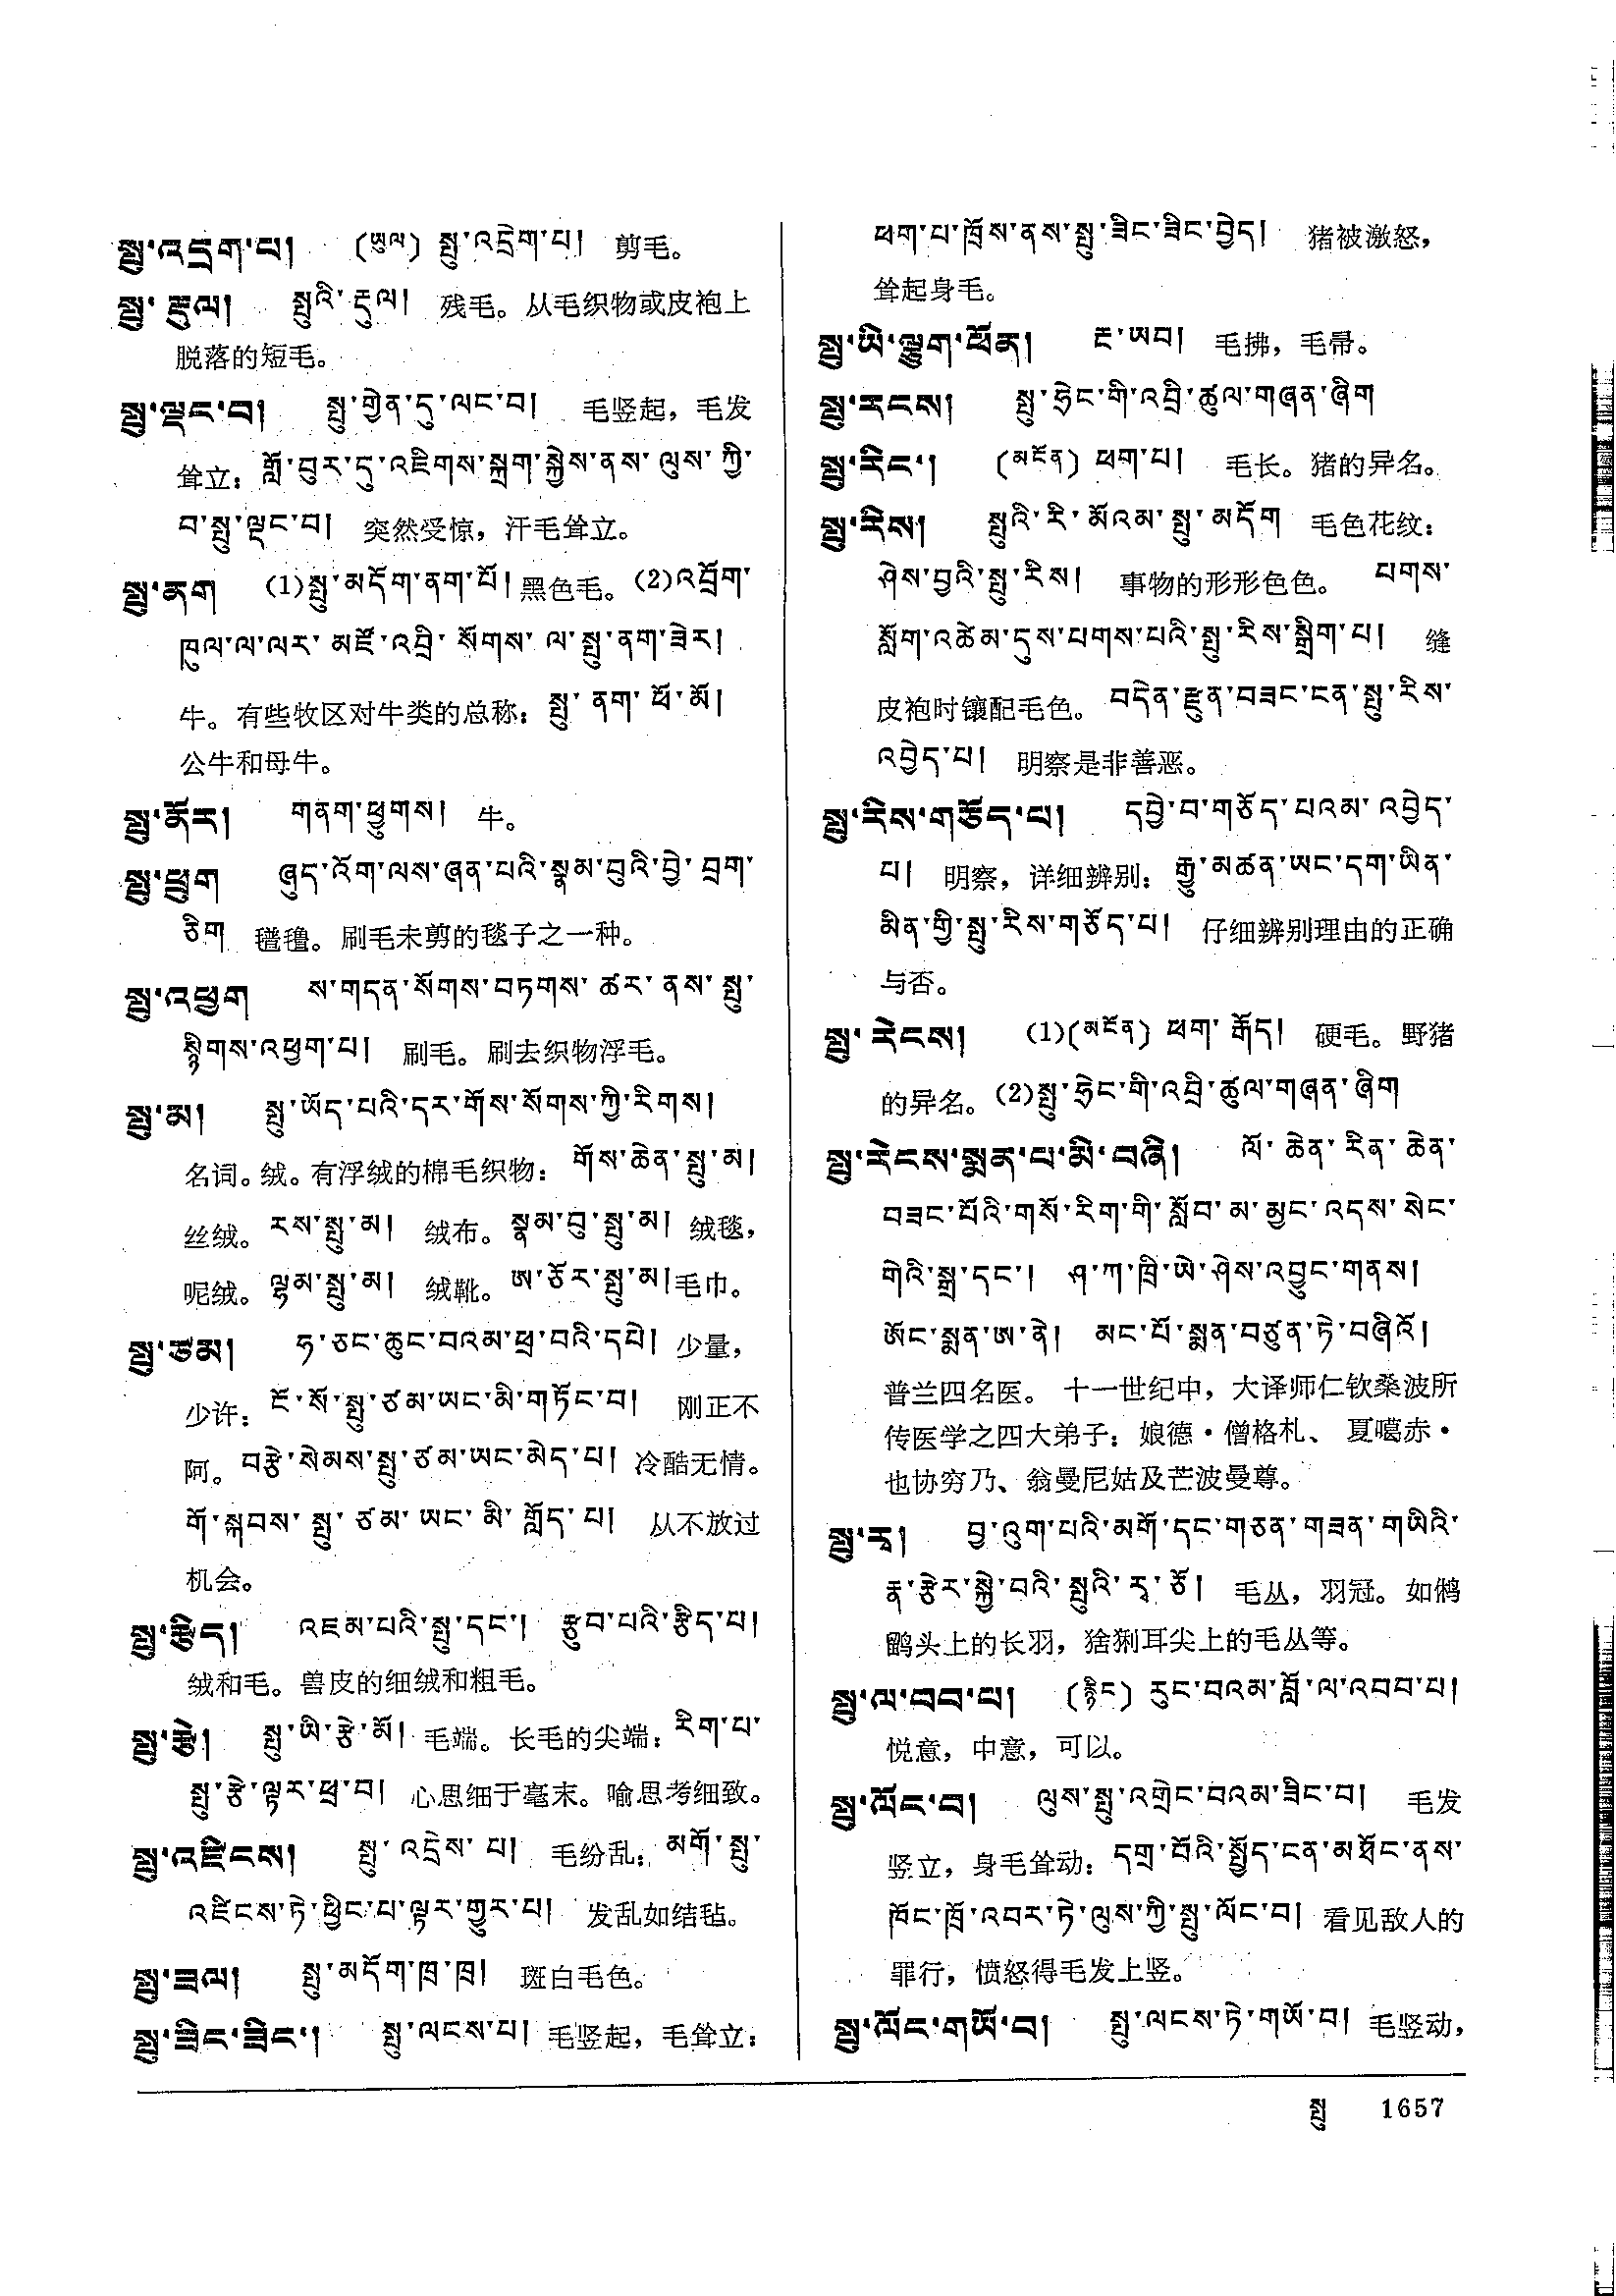 སྤུ་འདྲག་པ། (ཡུལ) སྤུ་འདྲེག་པ། 剪毛。
སྤུ་རྡུལ། སྤུའི་རྡུལ། 残毛。从毛织物或皮袍上
脱落的短毛。
སྤུ་ལྡང་བ། སྤུ་གྱེན་དུ་ལང་བ། 毛竖起，毛发
耸立：གློ་བུར་དུ་འཇིགས་སྐྲག་སྐྱེས་ནས་ལུས་ཀྱི་
བ་སྤུ་ལྡང་བ། 突然受惊，汗毛耸立。
སྤུ་ནག (1)སྤུ་མདོག་ནག་པོ། 黑色毛。(2)འབྲོག་
ཁུལ་ལ་ལར་མཛོ་འབྲི་སོགས་ལ་སྤུ་ནག་ཟེར།
牛。有些牧区对牛类的总称：སྤུ་ནག་ཕོ་མོ།
公牛和母牛。
སྤུ་ནོར། གནག་ཕྱུགས། 牛。
སྤུ་ཕྲུག ཞུད་འོག་ལས་ཞན་པའི་སྣམ་བུའི་བྱེ་བྲག་
ཅིག 氆氇。刷毛未剪的毯子之一种。
སྤུ་འཕྱག ས་གདན་སོགས་བཏགས་ཚར་ནས་སྤུ་
སྙིགས་འཕྱག་པ། 刷毛。刷去织物浮毛。
སྤུ་མ། སྤུ་ཡོད་པའི་དར་གོས་སོགས་ཀྱི་རིགས།
名词。绒。有浮绒的棉毛织物：གོས་ཆེན་སྤུ་མ།
丝绒。རས་སྤུ་མ། 绒布。སྣམ་བུ་སྤུ་མ། 绒毯，
呢绒。ལྷམ་སྤུ་མ། 绒靴。ཨ་ཅོར་སྤུ་མ། 毛巾。
སྤུ་ཙམ། ཧ་ཅང་ཆུང་བའམ་ཕྲ་བའི་དཔེ། 少量，
少许：ངོ་སོ་སྤུ་ཙམ་ཡང་མི་གཏོང་བ། 刚正不
阿。བརྩེ་སེམས་སྤུ་ཙམ་ཡང་མེད་པ། 冷酷无情。
གོ་སྐབས་སྤུ་ཙམ་ཡང་མི་གློད་པ། 从不放过
机会。
སྤུ་རྩིད། འཇམ་པའི་སྤུ་དང་། རྩུབ་པའི་རྩིད་པ།
绒和毛。兽皮的细绒和粗毛。
སྤུ་རྩེ། སྤུ་ཡི་རྩེ་མོ། 毛端。长毛的尖端：རིག་པ་
སྤུ་རྩེ་ལྟར་ཕྲ་བ། 心思细于毫末。喻思考细致。
སྤུ་འཛིངས། སྤུ་འདྲེས་པ། 毛纷乱：མགོ་སྤུ་
འཛིངས་ཏེ་ཕྱིང་པ་ལྟར་གྱུར་པ། 发乱如结毡。
སྤུ་ཟལ། སྤུ་མདོག་ཁྲ་ཁྲ། 斑白毛色。
སྤུ་ཟིང་ཟིང་། སྤུ་ལངས་པ། 毛竖起，毛耸立：
ཕག་པ་ཁྲོས་ནས་སྤུ་ཟིང་ཟིང་བྱེད། 猪被激怒，
耸起身毛。
སྤུ་ཡི་ལྕུག་ཕོན། རྔ་ཡབ། 毛拂，毛帚。
སྤུ་རངས། སྤུ་ཧྲེང་གི་འབྲི་ཚུལ་གཞན་ཞིག
སྤུ་རིང་། (མངོན) ཕག་པ། 毛长。猪的异名。
སྤུ་རིས། སྤུའི་རི་མོའམ་སྤུ་མདོག 毛色花纹：
ཤེས་བྱའི་སྤུ་རིས། 事物的形形色色。 པགས་
སློག་འཚེམ་དུས་པགས་པའི་སྤུ་རིས་སྒྲིག་པ། 缝
皮袍时镶配毛色。བདེན་རྫུན་བཟང་ངན་སྤུ་རིས་
འབྱེད་པ། 明察是非善恶。
སྤུ་རིས་གཅོད་པ། དབྱེ་བ་གཅོད་པའམ་འབྱེད་
པ། 明察，详细辨别：རྒྱུ་མཚན་ཡང་དག་ཡིན་
མིན་གྱི་སྤུ་རིས་གཅོད་པ། 仔细辨别理由的正确
与否。
སྤུ་རེངས། (1)(མངོན) ཕག་རྒོད། 硬毛。野猪
的异名。(2)སྤུ་ཧྲེང་གི་འབྲི་ཚུལ་གཞན་ཞིག
སྤུ་རེངས་སྨན་པ་མི་བཞི། ལོ་ཆེན་རིན་ཆེན་
བཟང་པོའི་གསོ་རིག་གི་སློབ་མ་མྱང་འདས་སེང་
གེའི་སྒྲ་དང་། ཤ་ཀ་ཁྲི་ཡེ་ཤེས་འབྱུང་གནས།
ཨོང་སྨན་ཨ་ནེ། མང་པོ་སྨན་བཙུན་ཏེ་བཞིའོ།
普兰四名医。十一世纪中，大译师仁钦桑波所
传医学之四大弟子：娘德·僧格札、夏噶赤·
也协穷乃、翁曼尼姑及芒波曼尊。
སྤུ་རྭ། བྱ་འུག་པའི་མགོ་དང་གཅན་གཟན་གཡིའི་
རྣ་རྩེར་སྐྱེ་བའི་སྤུའི་རྭ་ཅོ། 毛丛，羽冠。如鸺
鹠头上的长羽，猞猁耳尖上的毛丛等。
སྤུ་ལ་བབ་པ། (རྙིང) རུང་བའམ་བློ་ལ་འབབ་པ།
悦意，中意，可以。
སྤུ་ལོང་བ། ལུས་སྤུ་འགྲེང་བའམ་ཟིང་བ། 毛发
竖立，身毛耸动：དགྲ་བོའི་སྤྱོད་ངན་མཐོང་ནས་
ཁོང་ཁྲོ་འབར་ཏེ་ལུས་ཀྱི་སྤུ་ལོང་བ། 看见敌人的
罪行，愤怒得毛发上竖。
སྤུ་ལོང་གཡོ་བ། སྤུ་ལངས་ཏེ་གཡོ་བ། 毛竖动，
སྤུ 1657